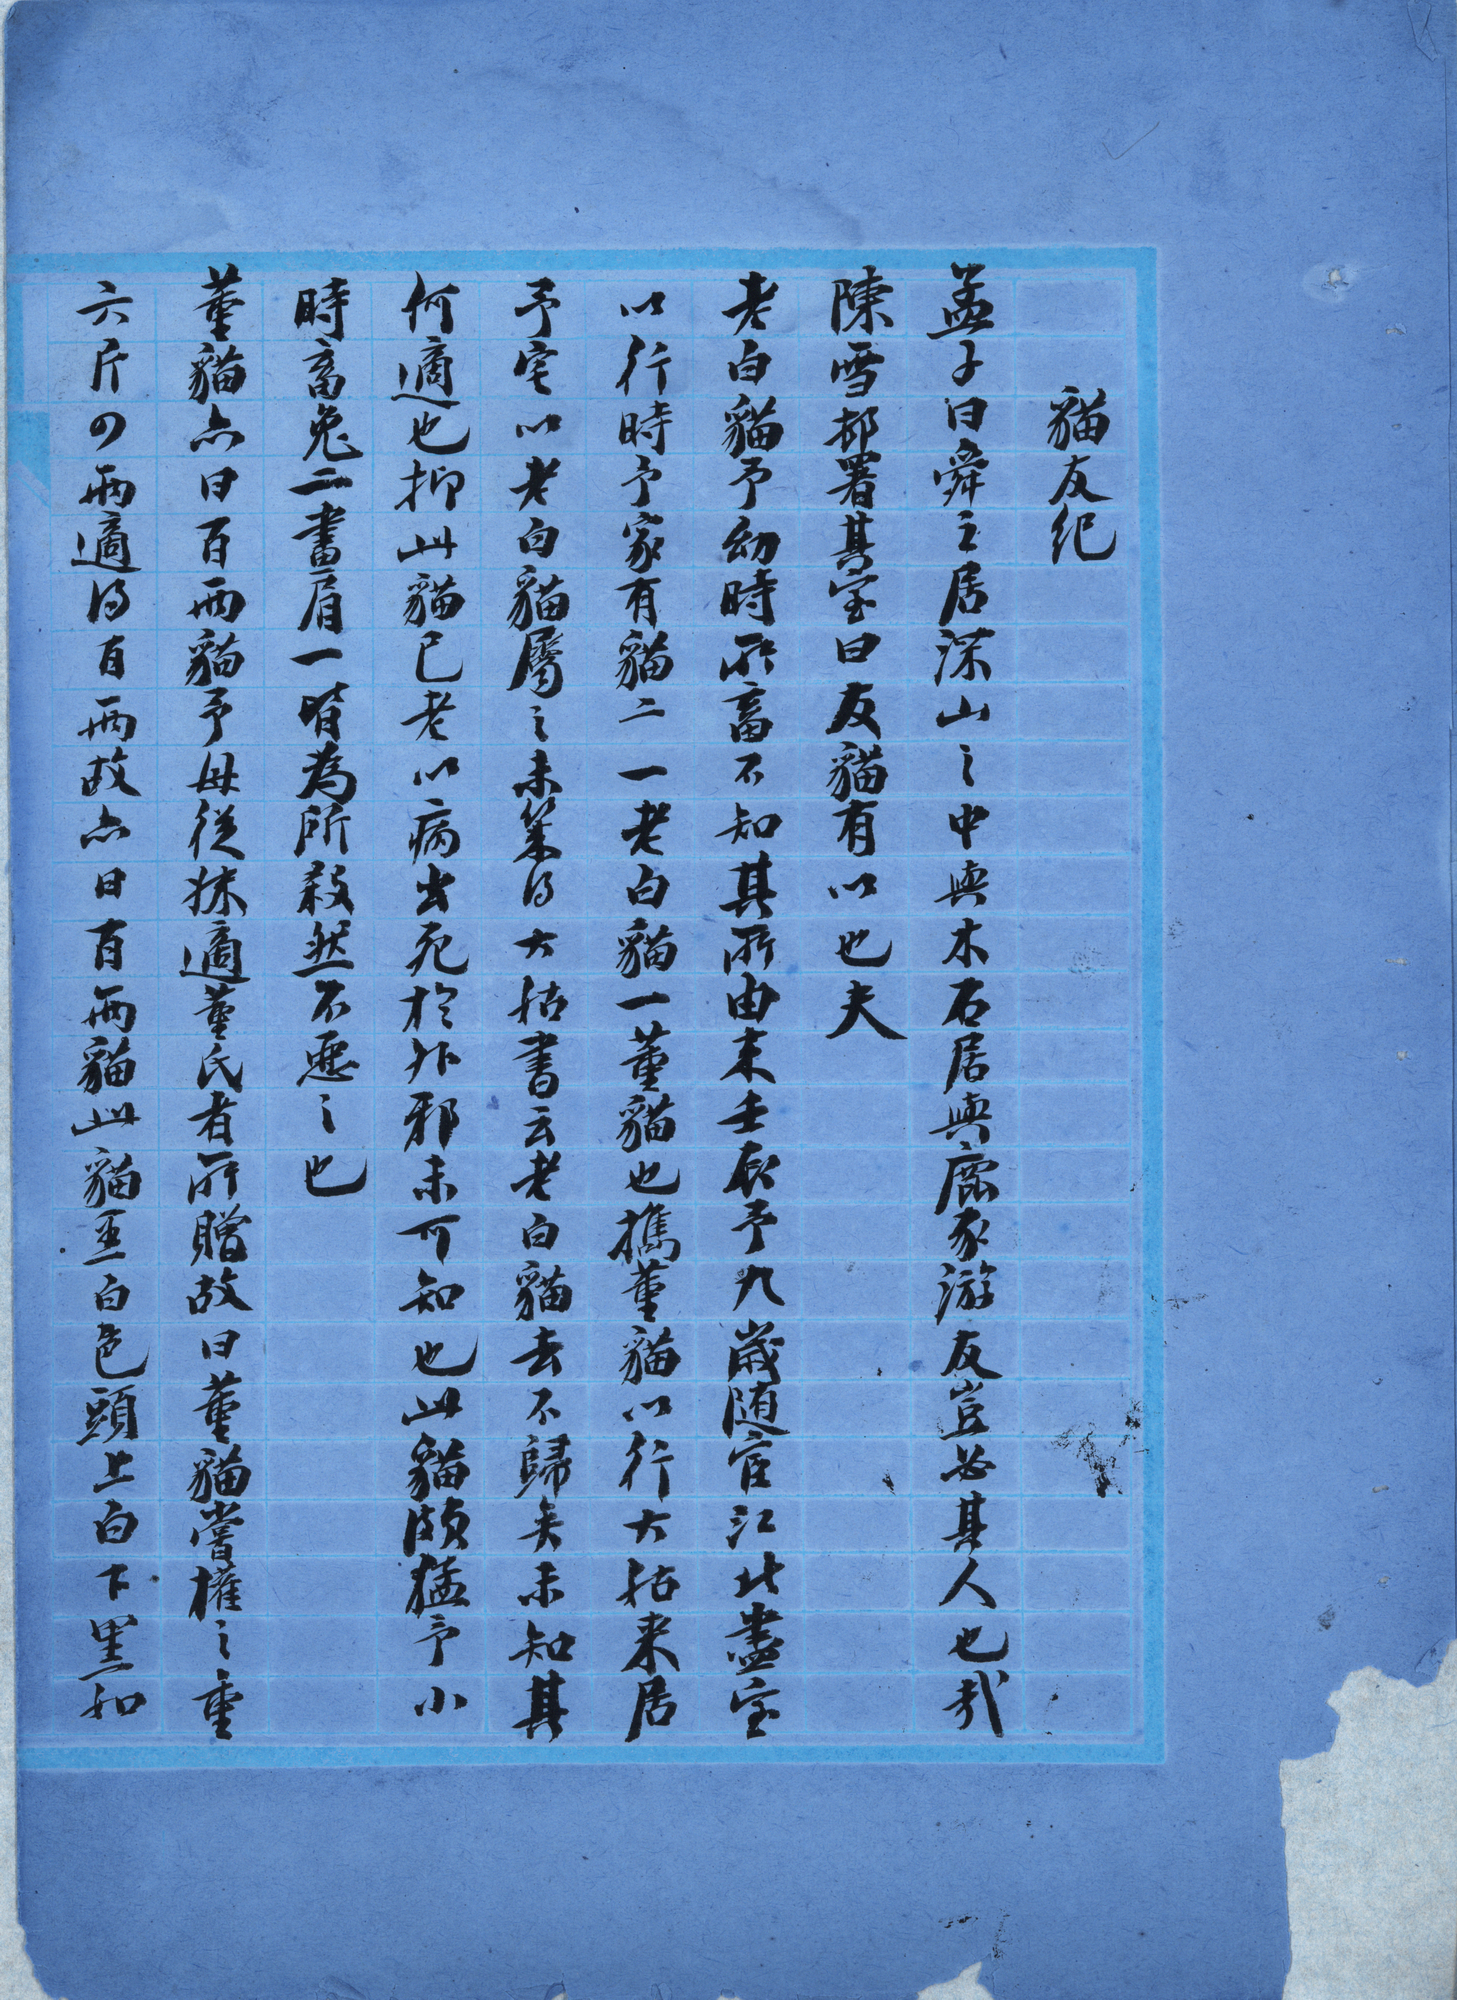 貓友紀
孟子曰舜之居深山之中與木石居與鹿豕游友豈必其人也哉
陳雪邨署其室曰友貓有以也夫
老白貓予幼時所畜不知其所由来壬辰予九歲随宦江北盡室
以行時予家有貓二一老白貓一董貓也攜董貓以行大姑来居
予宅以老白貓屬之未幾得大姑書云老白貓去不歸矣未知其
何適也抑此貓已老以病出死於外邪未可知也此貓頗猛予小
時畜兔二畫眉一皆為所殺然不惡之也
董貓亦曰百兩貓予母從妹適董氏者所贈故曰董貓嘗權之重
六斤四兩適得百兩故亦曰百兩貓此貓全白色頭上白下黑如